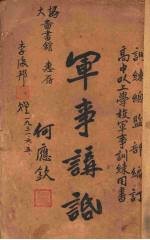 訓練總監部編訂
高中以上學校軍事訓練用書
軍事講話
何應欽
大圖書館 惠存
李俊邦 贈